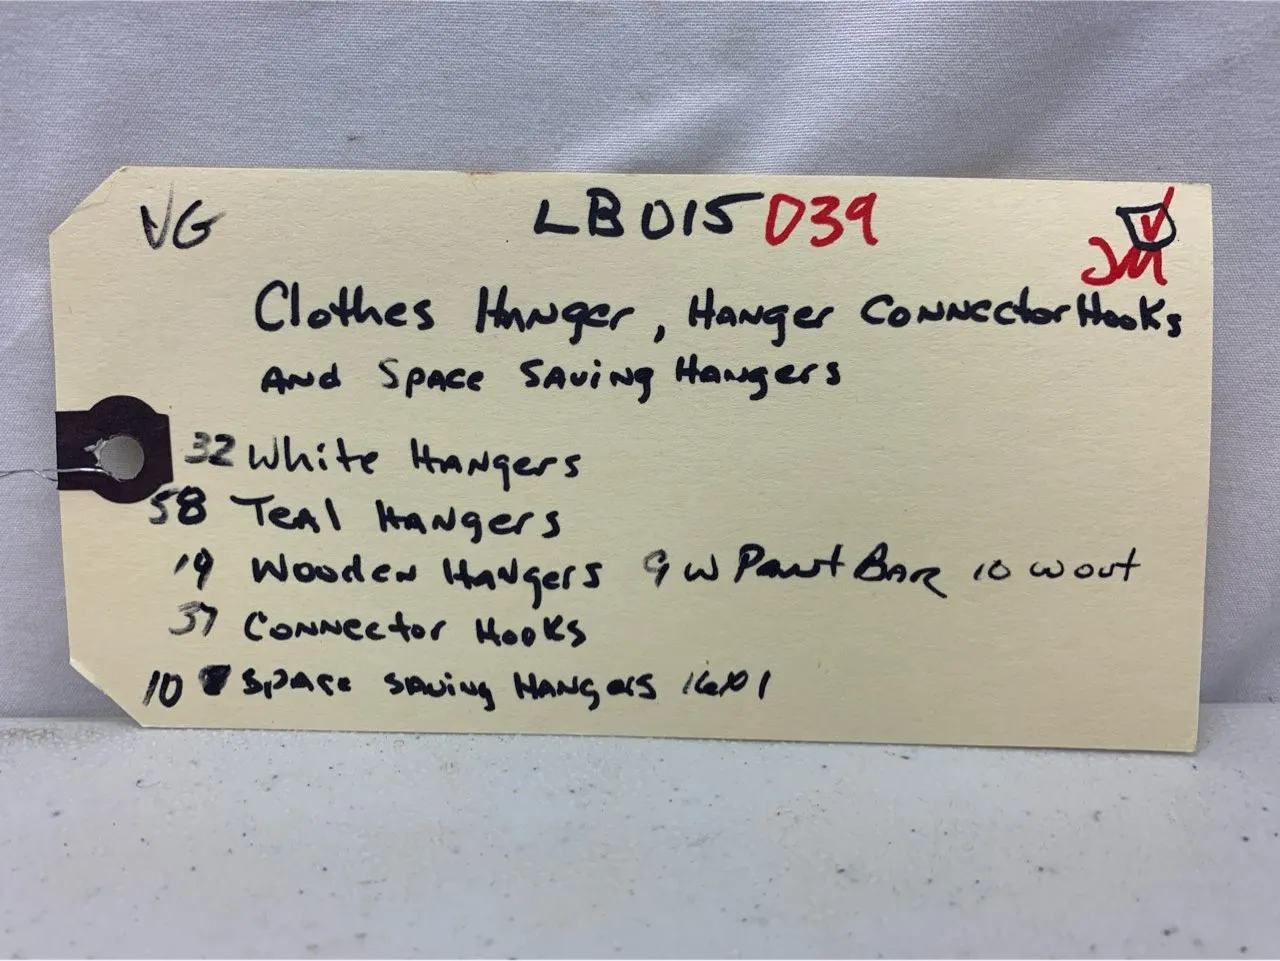 VG LB015 039
JM
Clothes Hanger, Hanger Connector Hooks
and Space Saving Hangers
32 White Hangers
58 Teal Hangers
19 Wooden Hangers 9 w Pant Bar 10 w out
37 Connector Hooks
10 Space Saving Hangers